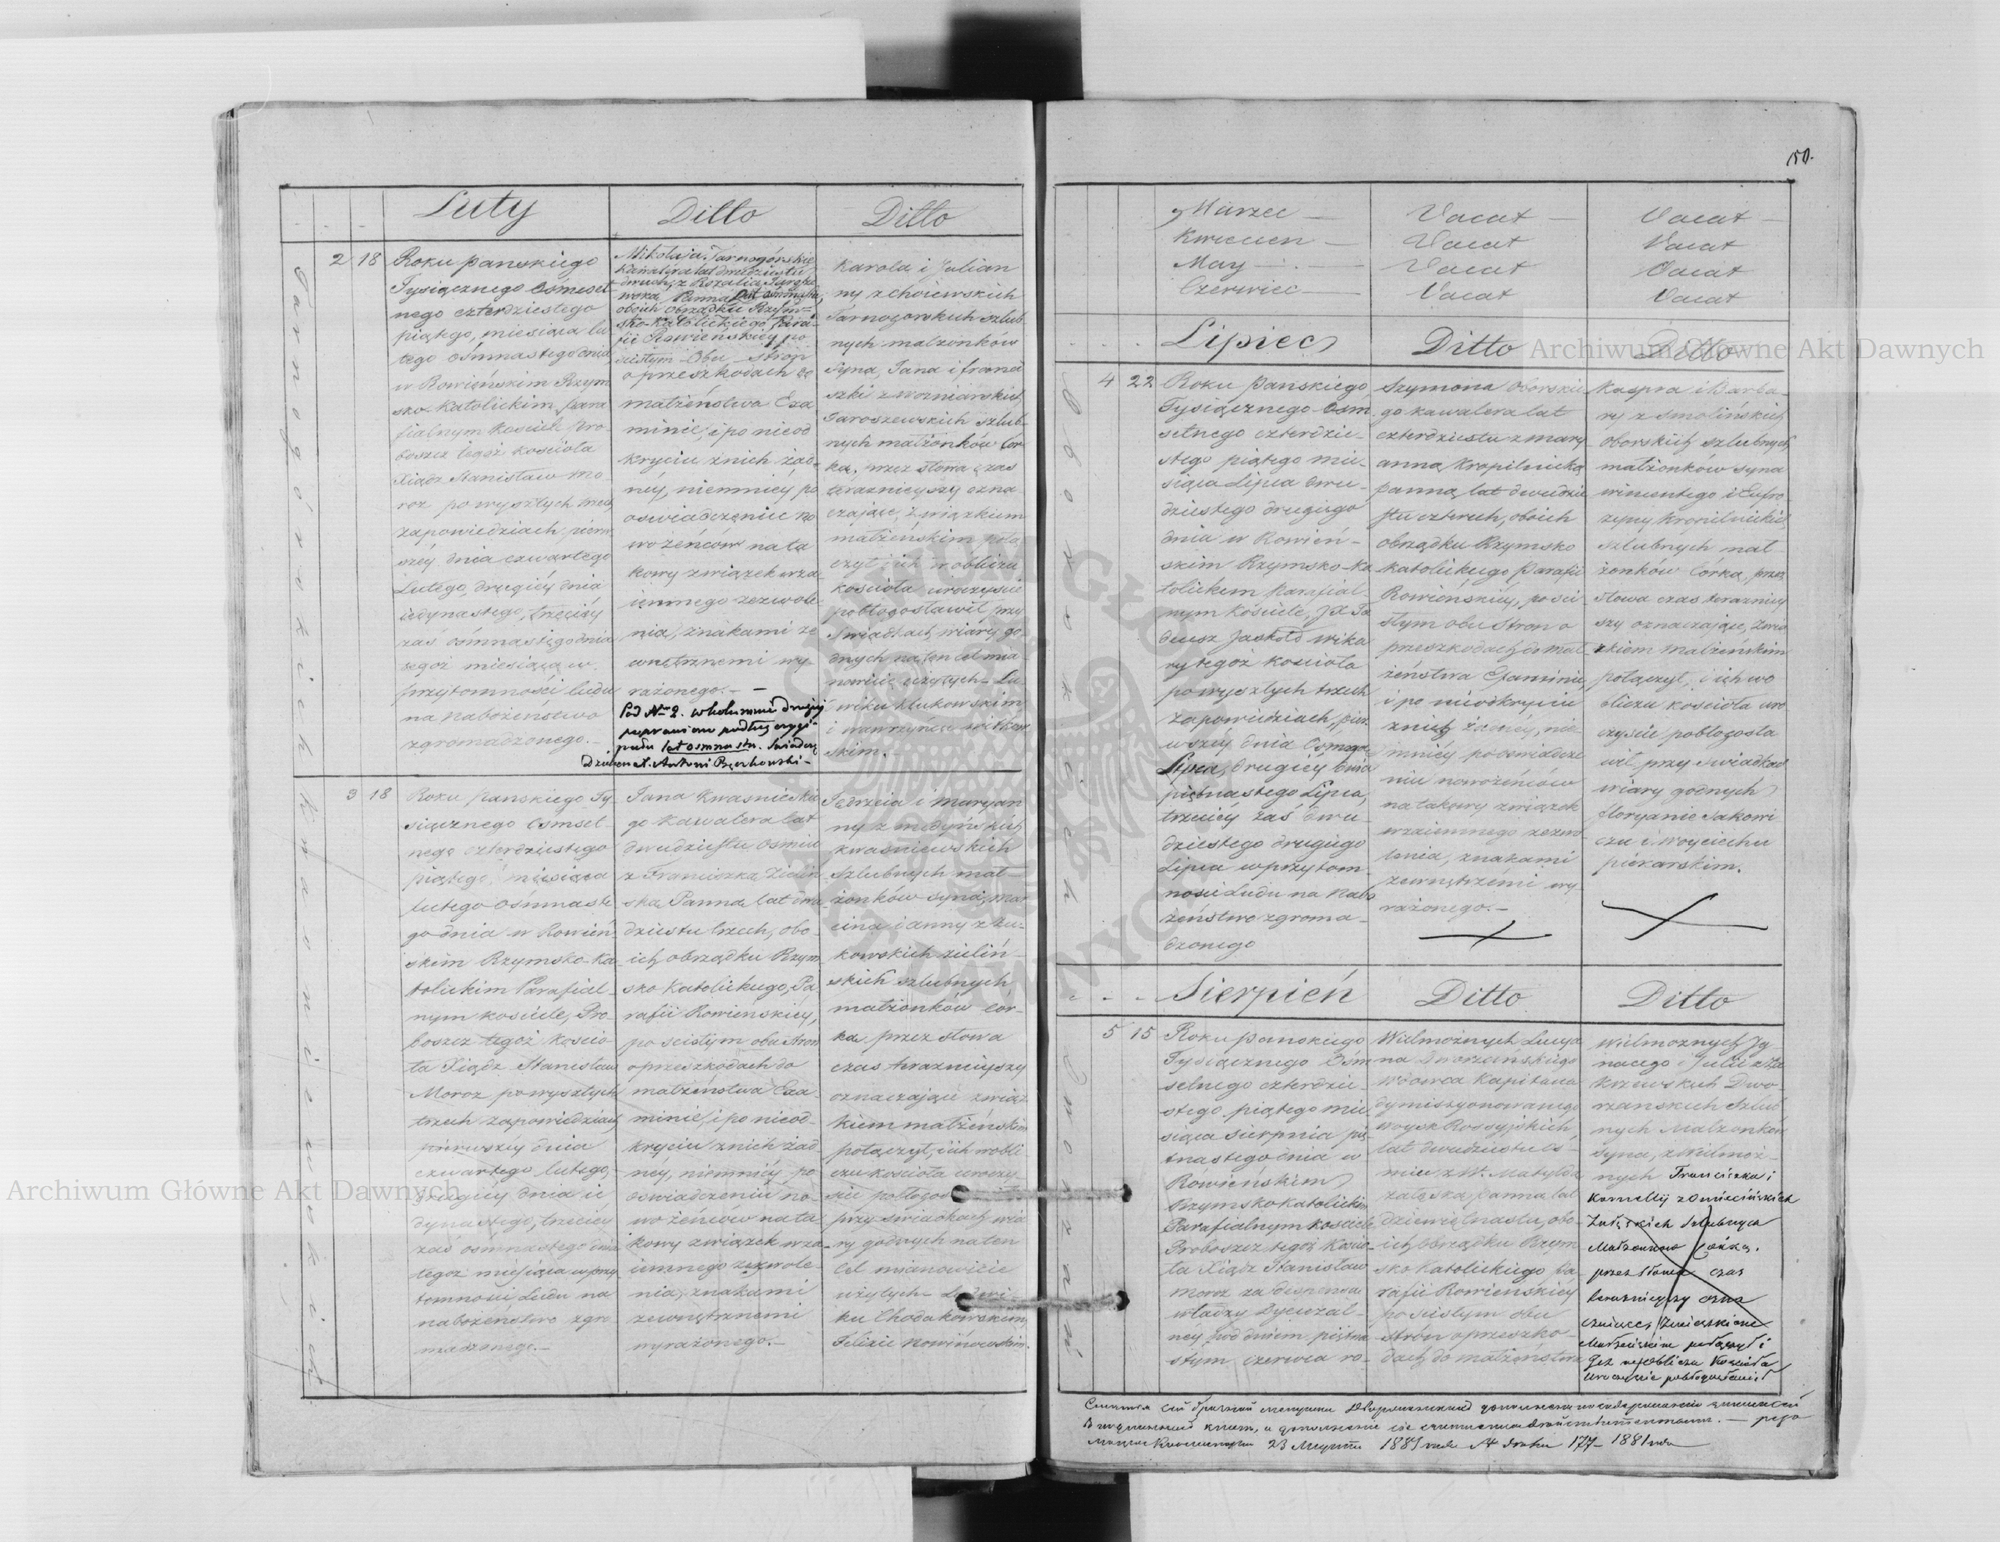 Luty
Ditto
Ditto
Tarnogórskich
2 18
Roku Panskiego
Tysiącznego Osmset
nego czterdziestego
piątego, miesiąca lu-
tego ośmnastego dnia
w Rowieńskim Rzym
sko-Katolickim para
fialnym Kosciele Pro-
boszcz tegoż kościoła
Xiądz Stanisław Mo-
roz po wyszłych trzech
zapowiedziach, pierw
széy dnia czwartego
Lutego, drugiéy dnia
iedynastego, trzeciéy
zaś ośmnastego dnia
tegoż miesiąca w
przytomności ludu
na nabożeństwo
zgromadzonego.
Mikołaja Tarnogórskie
kawalera lat dwudziestu
dwuch, z Rozalią Jarosze
wską Panną lat osmnastu,
oboich obrządku Rzym-
sko-Katolickiego, Para-
fii Rowieńskiey, po
scisłym Obu Stron
o przeszkodach do
małżeństwa Exa
minie, i po nieod
kryciu z nich żad-
néy, niemniéy po
oswiadczenie no
wożeńcow na ta
kowy związek wza
iemnego zezwole
nia, znakami ze
wnętrznemi wy-
rażonego.
Pod N-m 2. w kolumnie drugiéj
poprawione podług orygi-
nału lat osmnastu. Swiadczę
Dziekan Antoni
Karola i Julian
ny z Choiewskich
Tarnogorskich szlub
nych małżonków
Syna, Jana i Francis
szki z Wozniarskich
Jaroszewskich szlub-
nych małżonków Cor
ka, przez słowa czas
teraznieyszy ozna-
czaiące, związkiem
małżeńskim połą
czył, i ich w obliczu
kościoła uroczyscie
pobłogosławił, przy
Swiadkach wiary go
dnych na ten cel mia
nowicie użytych Lu
wiku Żukowskim
i Wawrzyńcu Witkow
skim.
Kwasniewskich
3 18
Roku Panskiego Ty-
siącznego Osmset-
nego czterdziestego
piątego, miesiąca
lutego Osmnaste
go dnia w Rowień-
skim Rzymsko-Ka-
tolickim Parafial-
nym kosciele, Pro-
boszcz tegoż koscio-
ła Xiądz Stanisław
Moroz po wyszłych
trzech zapowiedziach
pierwszéy dnia
czwartego lutego,
drugiéy dnia ie
dynastego, trzeciéy
zaś osmnastego dnia
tegoż miesiąca w przy
tomnosci Ludu na
nabożeństwo zgro
madzonego.
Jana Kwasniewskie
go Kawalera lat
dwudziestu osmiu
z Franciszką Zieliń
ską Panną lat dwu
dziestu trzech, obo-
ich obrządku Rzym
sko Katolickiego, Pa
rafii Rowienskiéy,
po scisłym obu stron
o przeszkodach do
małżeństwa Exa-
minie, i po nieod-
kryciu z nich żad
néy, niemniéy po
oswiadczeniu no-
wożeńców na ta-
kowy związek wza-
iemnego zezwole-
nia, znakami
zewnętrznemi
wyrażonego.
Jędrzeia i Maryan
ny z Medyńskich
Kwasniewskich
Szlubnych mał-
żonków syna, Mar
cina i Anny z Żu-
kowskich Zieliń-
skich szlubnych
małżonków cor-
ka, przez słowa
czas teraznieyszy
oznaczaiące związ
kiem małżeńskim
połączył, i ich w obli
czu kościoła uroczy
scie pobłogosł
przy swiadkach wia
ry godnych na ten
cel mianowicie
użytych Ludwi-
ku Chodakowskim,
Felixie Nowińcowskim.
150.
Marzec Vacat Vacat
Kwiecien Vacat Vacat
May Vacat Vacat
Czerwiec Vacat Vacat
Lipiec
Ditto
Ditto
Oborskich
4 22
Roku Panskiego
Tysiącznego Osm
setnego czterdzie-
stego piątego mie-
siąca Lipca dwu-
dziestego drugiego
dnia w Rowień-
skim Rzymsko-Ka
tolickim Parafial-
nym Kościele, JX Ta
deusz Jaskołd wika
ry tegoż kosciola
po wyszłych trzech
zapowiedziach, pier
wszéy dnia Osmego
Lipca, drugiéy dnia
piętnastego Lipca,
trzeciéy zaś dwu
dziestego drugiego
Lipca w przytom
nosci Ludu na nabo
żeństwo zgroma-
dzonego
Szymona Oborskie
go kawalera lat
czterdziestu z Mary
anną Kropilnicką
panną lat dwudzie
stu czterech, oboich
obrządku Rzymsko
Katolickiego Parafii
Rowieńskiéy, po sci-
słym obu Stron o
przeszkodach do mał
żeństwa Examinie,
i po nieodkryciu
z nich żadnéy, nie
mniéy po oswiadcze
niu nowożeńców
na takowy związek
wzaiemnego zezwo
lenia, znakami
zewnętrznémi wy
rażonego.
Kaspra i Barba-
ry z Smolińskich
Oborskich szlubnych
małżonków syna
Wincentego i Eufro-
zyny Kropilnickich
szlubnych mał-
żonków Córką, przez
słowa czas teraźniey
szy oznaczaiące, Zwią
zkiem małżeńskim
połączył, i ich w o
bliczu kościoła uro
czyscie pobłogosła
wił, przy Swiadkach
wiary godnych
Floryanie Jakowi
czu i Woyciechu
piekarskim.
Sierpień
Ditto
Ditto
Dworzanin
5 15
Roku Panskiego
Tysiącznego Osm
setnego czterdzie-
stego piątego mie
siąca sierpnia pię-
tnastego dnia w
Rowieńskim
Rzymsko Katolickim
Parafialnym kosciele
Proboszcz tegoż kościo
ła Xiądz Stanisław
Moroz za dispensą
władzy Dyecezal-
néy pod dniem piętna
stym czerwca ro-
Wielmożnych Lucya
na Dworzańskiego
wdowca Kapitana
dymissyonowanego
woysk Rossyiskich,
lat dwudziestu o-
smiu z W. Matyldą
Załęską panną lat
dziewiętnastu, obo-
ich obrządku Rzym
sko Katolickiego pa-
rafii Rowieńskiey
po scisłym obu
stron o przeszko-
dach do małżeństwa
Wielmożnych Ig-
nacego i Julii z Za
krzewskich Dwo-
rzanskich szlub
nych Małżonkow
syna, z Wielmoż-
nych Franciszka i
Kornelly z Omiecińskich
Załęskich szlubnych
Małżonkow Córką,
przez słowa czas
terazniejszy ozna
czaiące, Związkiem
Małżeńskim połączył i
Ich w obliczu Kościoła
Uroczyście pobłogosławił
23 Марта 1881 года № 177 1881 года
Archiwum Główne Akt Dawnych
Archiwum Główne Akt Dawnych